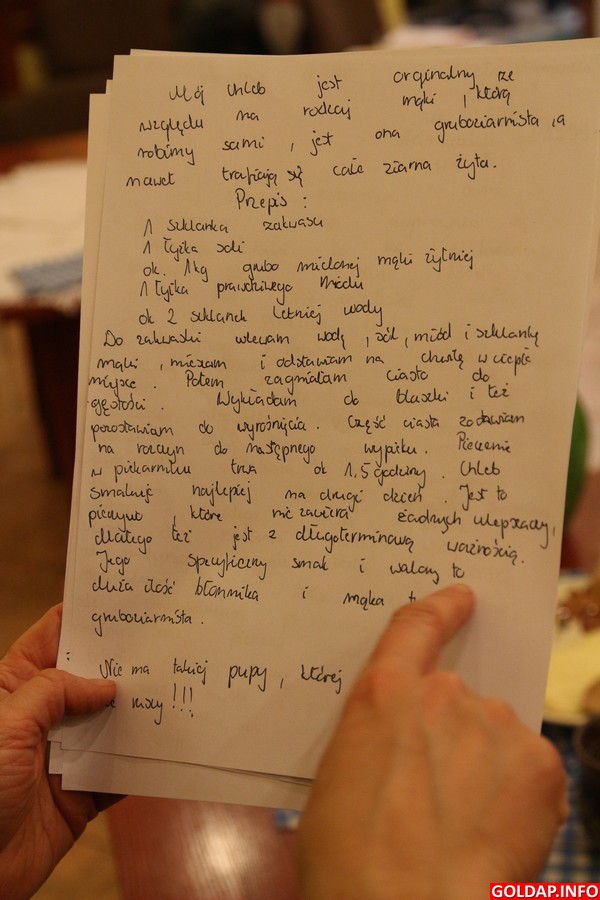 Mój chleb jest orginalny ze
względu na rodzaj mąki, którą
robimy sami, jest ona gruboziarnista, a
nawet trafiają się całe ziarna żyta.
Przepis:
1 szklanka zakwasu
1 łyżka soli
ok. 1kg grubo mielonej mąki żytniej
1 łyżka prawdziwego miodu
ok 2 szklanek letniej wody
Do zakwaski wlewam wodę, sól, miód i szklankę
mąki, mieszam i odstawiam na chwilę w ciepłe
miejsce. Potem zagniatam ciasto do
gęstości. Wykładam do blaszki i też
pozostawiam do wyrośnięcia. Część ciasta zostawiam
na rozczyn do następnego wypieku. Pieczenie
w piekarniku trwa ok 1,5 godziny. Chleb
smakuje najlepiej na drugi dzień. Jest to
pieczywo, które nie zawiera żadnych ulepszaczy,
dlatego też jest z długoterminową ważnością.
Jego specyficzny smak i walory to
duża ilość błonnika i mąka
gruboziarnista.
Nie ma takiej pupy, której
nie ruszy!!!
GOLDAP.INFO